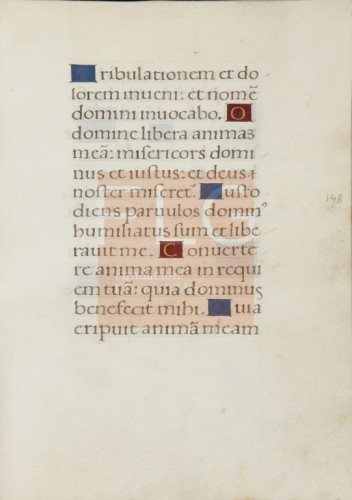 Tribulationem et do
lorem inueni: et nomẽ
domini inuocabo. O
domine libera animas
meã: misericors domi
nus et iustus: et deus
noster miseret⁹. Custo
diens paruulos domin⁹
humiliatus sum et libe
rauit me. Conuerte
re anima mea in requi
em tuã: quia dominus
benefecit mihi. Quia
eripuit animã meam
148